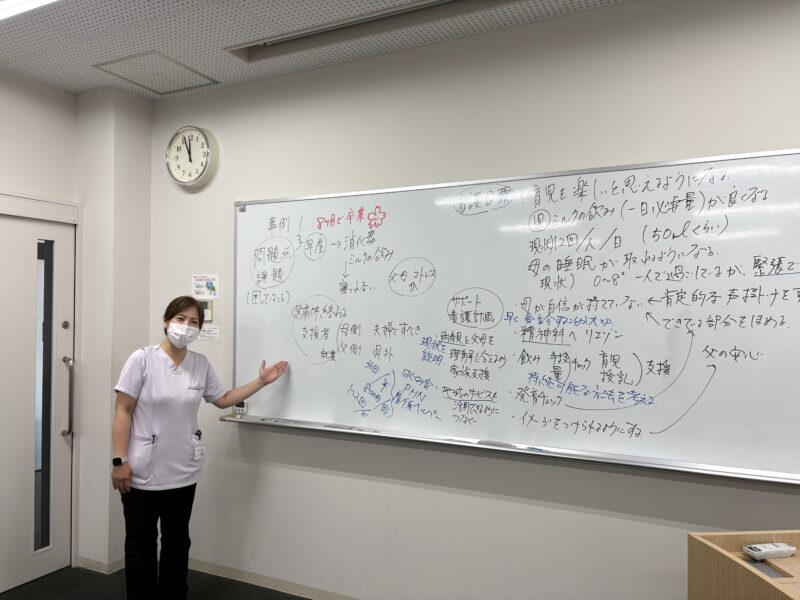 事例 1 8ヶ月で卒業
問題点
課題
(困っていること)
早産 → 消化器
ミルクの飲み
↓
寝られない
父母 ストレス
父育休終わる
支援者 母側 夫婦ですべき
父側
看護目標
育児を楽しいと思えるようになる
ミルクの飲み(一日必要量)が良くなる
現状 12回/人/日 (50mlくらい)
母の睡眠が取れるようになる
現状) 0〜8° 一人で過ごしているが、緊張で
サポート
看護計画
・母が自信が持てていない ← 肯定的な声掛け
できている部分をほめる
・精神科へリエゾン
現状を
説明
・医療員と父母を
理解し合える
家族支援
・地域のサービスも
つなぐ
PHN
産後ヘルパー
・飲み 手技 量 チェック 育児 授乳 支援
持続可能な方法を考える
・発育チェック
・イメージをつけられるようにする
父の安心